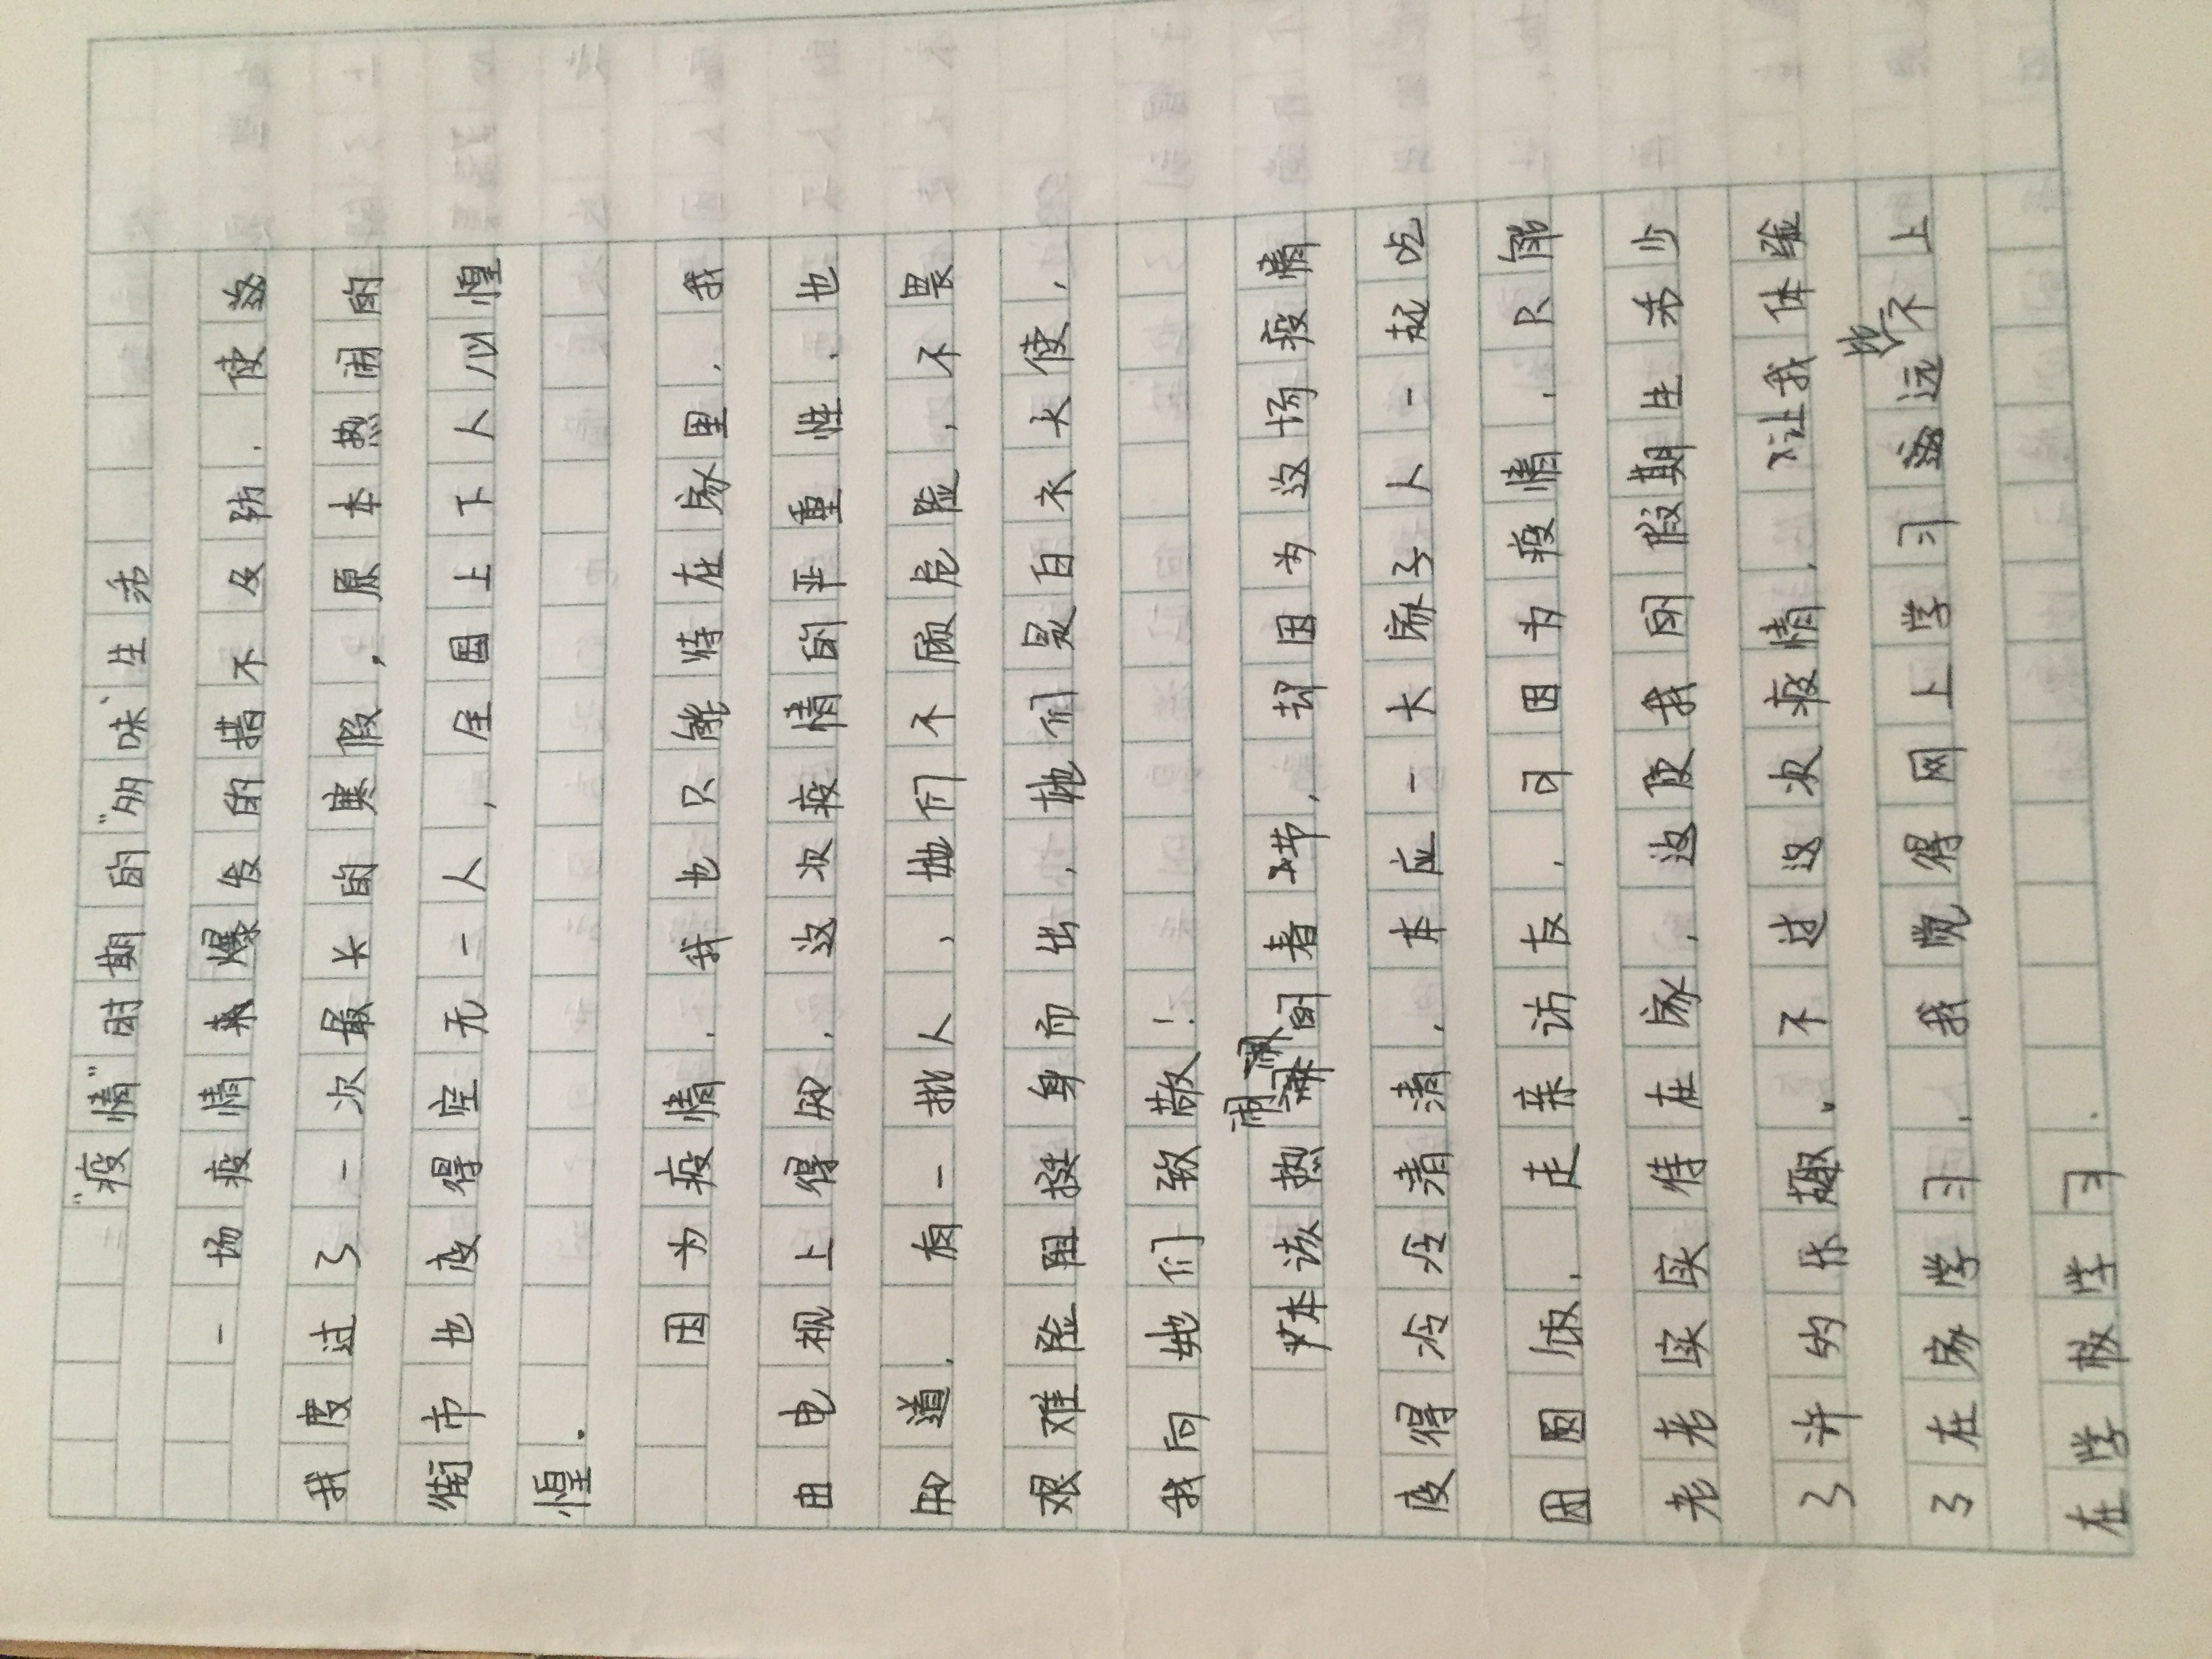 "疫情"时期的"多味"生活
一场疫情来爆发的措不及防，使这
我度过了一次最长的寒假，原本热闹的
街市也变得空无一人，全国上下人心惶
惶。
因为疫情，我也只能待在家里，我
由电视上得知，这次疫情的严重性，也
知道，有一批人，她们不顾危险，不畏
艰难险阻挺身而出，她们是白衣天使，
我向她们致敬！
本该热闹的春节，却因为这场疫情
变得冷冷清清，本应一大家子人一起吃
团圆饭，走亲访友，可因为疫情，只能
老老实实待在家，这使我的假期生活少
了许多乐趣。不过这次疫情，让我体验
了在家学习，我觉得网上学习远远地不上
在学校学习．